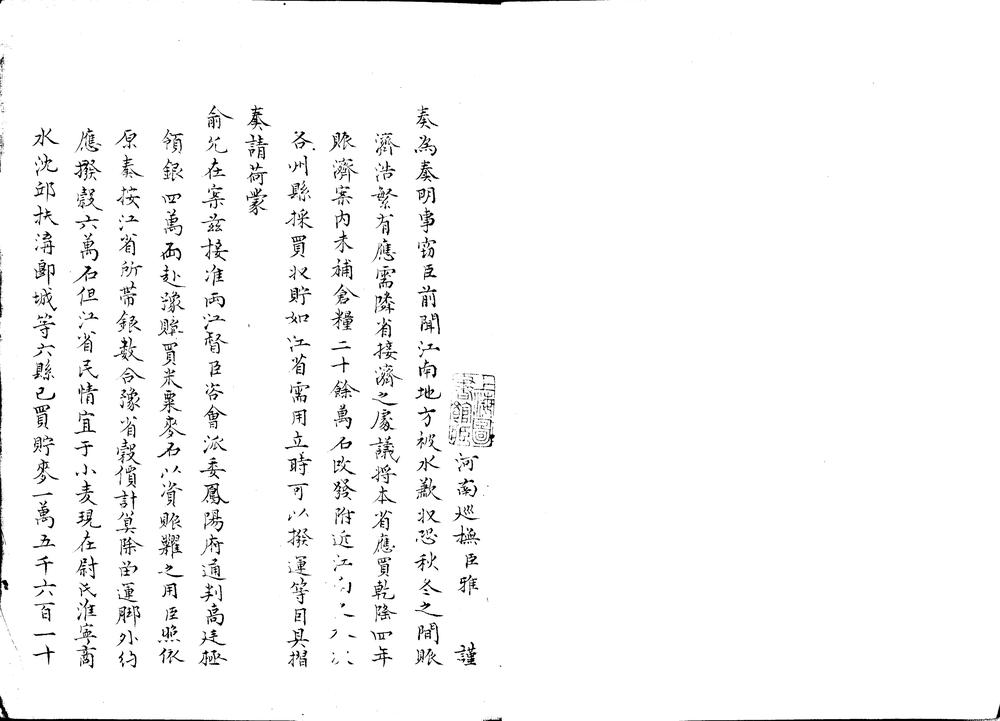 河南巡撫臣雅 謹
奏為奏明事竊臣前聞江南地方被水歉收恐秋冬之間賑
濟浩繁有應需隣省接濟之處議將本省應買乾隆四年
賑濟案內未補倉糧二十餘萬石改發附近江南之
各州縣採買收貯如江省需用立時可以撥運等因具摺
奏請荷蒙
俞允在案茲接准兩江督臣咨會派委鳳陽府通判高廷極
領銀四萬兩赴豫購買米粟麥石以資賑糶之用臣照依
原奏按江省所帶銀數合豫省穀價計算除留運腳外約
應撥穀六萬石但江省民情宜于小麦現在尉氏淮寧商
水沈邱扶溝郾城等六縣已買貯麥一萬五千六百一十